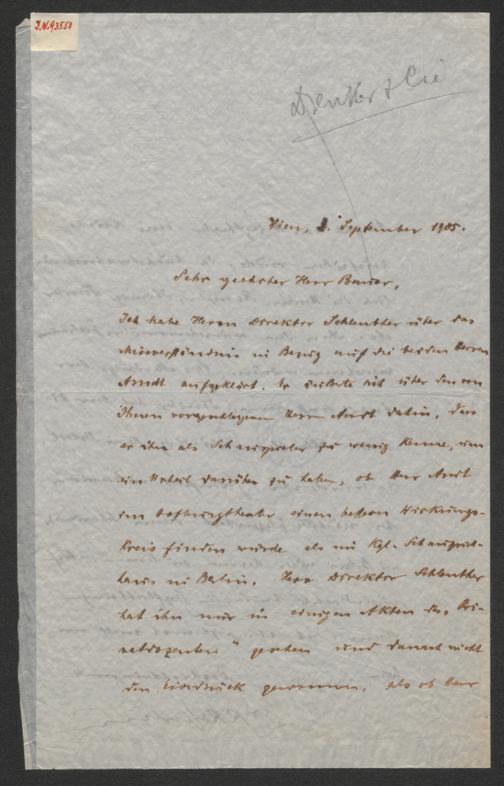 J.N. 93550
Wien, 1. September 1905.
Sehr geehrter Herr Bauer,
Ich habe Herrn Direktor Schlenther über das
Missverständnis in Bezug auf die beiden Herren
Arndt aufgeklärt. Er äußerte sich über den von
Ihnen vorgeschlagenen Herrn Arndt dahin, dass
er ihn als Schauspieler zu wenig kenne, um
ein Urteil darüber zu haben, ob Herr Arndt
im Hofburgtheater einen bessern Wirkungs-
kreis finden würde als im Kgl. Schauspiel-
haus in Berlin. Herr Direktor Schlenther
hat ihn nur in einigen Akten des „Pri-
vatdozenten" gesehen und danach nicht
den Eindruck gewonnen, als ob Herr